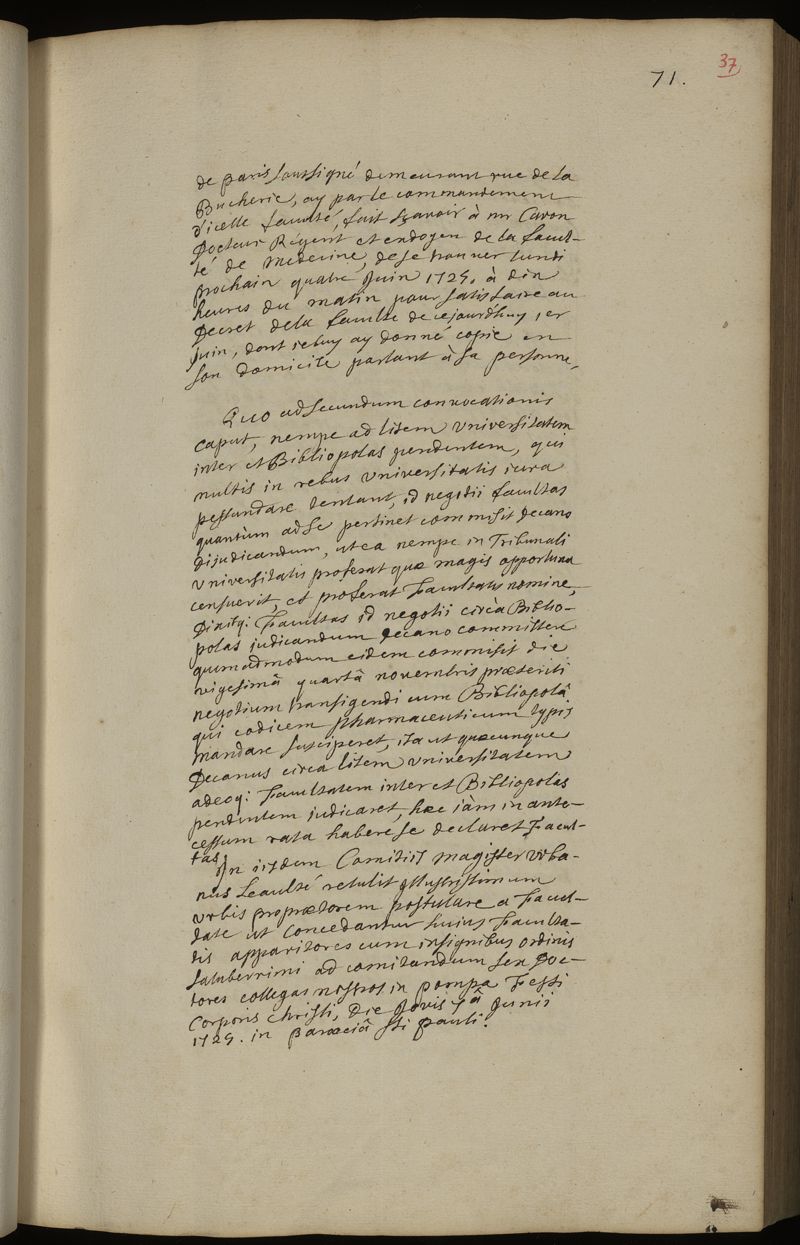 71.
37
de paris soussigné demeurant rue de la
Bucherie, ay par le commandement
d'icelle faculté, fait sçavoir à mr Caron
Docteur Régent et endoyen de la facul-
té de Medecine, de se trouver lundi
prochain quatre Juin 1725, à dix
heures du matin pour satisfaire au
Decret de la faculté de cejourd'huy 1er
Juin, dont iceluy ay donné copie en
son domicile parlant à sa personne,
Quo ad secundum convocationis
caput, nempe ad litem Universitatem
inter et Bibliopolas pendentem, qui
multis in rebus Universitatis iura
pessundare tentant, id negotii facultas
quantùm ad se pertinet commisit Decano
dijudicandum, ut ea nempe in Tribunali
Universitatis proferat quæ magis opportuna
censuerit, et proferat Facultatis nomine,
Dixitq: Facultas id negotii circà Biblio-
polas judicandum Decano committere
quemadmodum eidem commisit die
vigesimâ quartâ novembris præteriti
negotium transigendi cum Bibliopolâ
qui codicem pharmaceuticum typis
mandare susciperet, ita ut quæcunque
Decanus circa litem Universitatem
adeoq: Facultatem inter et Bibliopolas
pendentem judicaret, hæc iàm in ante-
cessum rata habere se declaret Facul-
tas.
In iisdem Comitiis magister Urba-
nus Leaulté retulit illustrissimum
urbis proprætorem postulare a Facul-
tate ut concedantur huius Faculta-
tis apparitores cum insignibus ordinis
saluberrimi ad comitandum sex Doc-
tores collegas nostros in pompa Festi
Corporis Christi, die Jovis 7â Junii
1725. in Paræciâ sti pauli.